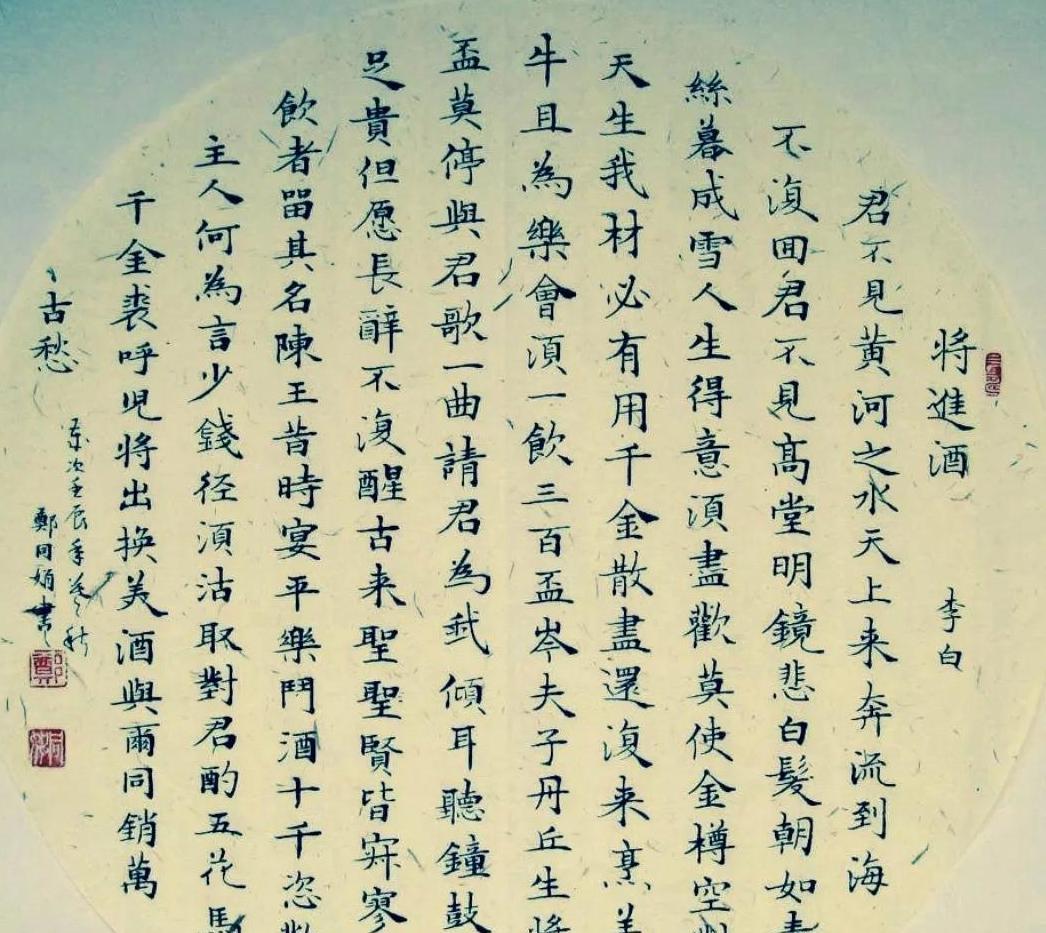 将進酒
李白
君不見黄河之水天上来奔流到海
不復囬君不見髙堂明鏡悲白髮朝如青
絲暮成雪人生得意須盡歡莫使金樽空
天生我材必有用千金散盡還復来烹羊
牛且為樂會須一飲三百盃岑夫子丹丘生将
盃莫停與君歌一曲請君為我傾耳聽鐘鼓
足貴但愿長辭不復醒古来聖聖賢皆寂寥
飲者留其名陳王昔時宴平樂鬥酒十千恣
主人何為言少錢径須沽取對君酌五花馬
千金裘呼児将出換美酒與爾同銷萬
古愁
次壬辰年 秋
鄭同娟書